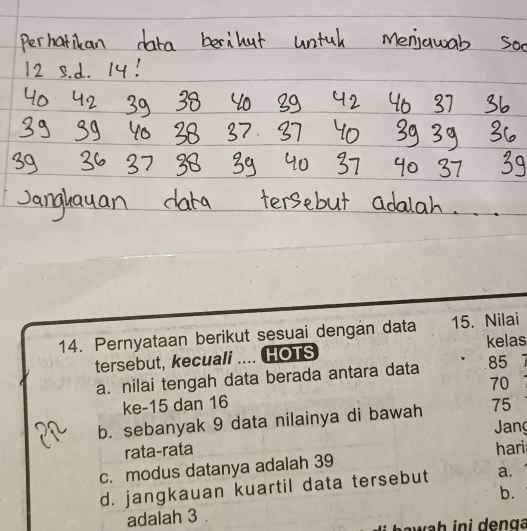 Perhatikan data berikut untuk Menjawab Soa
12 s.d. 14!
40 42 39 38 40 39 42 40 37 36
39 39 40 38 37 37 40 39 39 36
39 36 37 38 39 40 37 40 37 39
Jangkauan data tersebut adalah....
14. Pernyataan berikut sesuai dengan data
tersebut, kecuali .... HOTS
a. nilai tengah data berada antara data
ke-15 dan 16
b. sebanyak 9 data nilainya di bawah
rata-rata
c. modus datanya adalah 39
d. jangkauan kuartil data tersebut
adalah 3
PR
15. Nilai
kelas
85 7
70
75
Jang
hari
a.
b.
di bawah ini denga